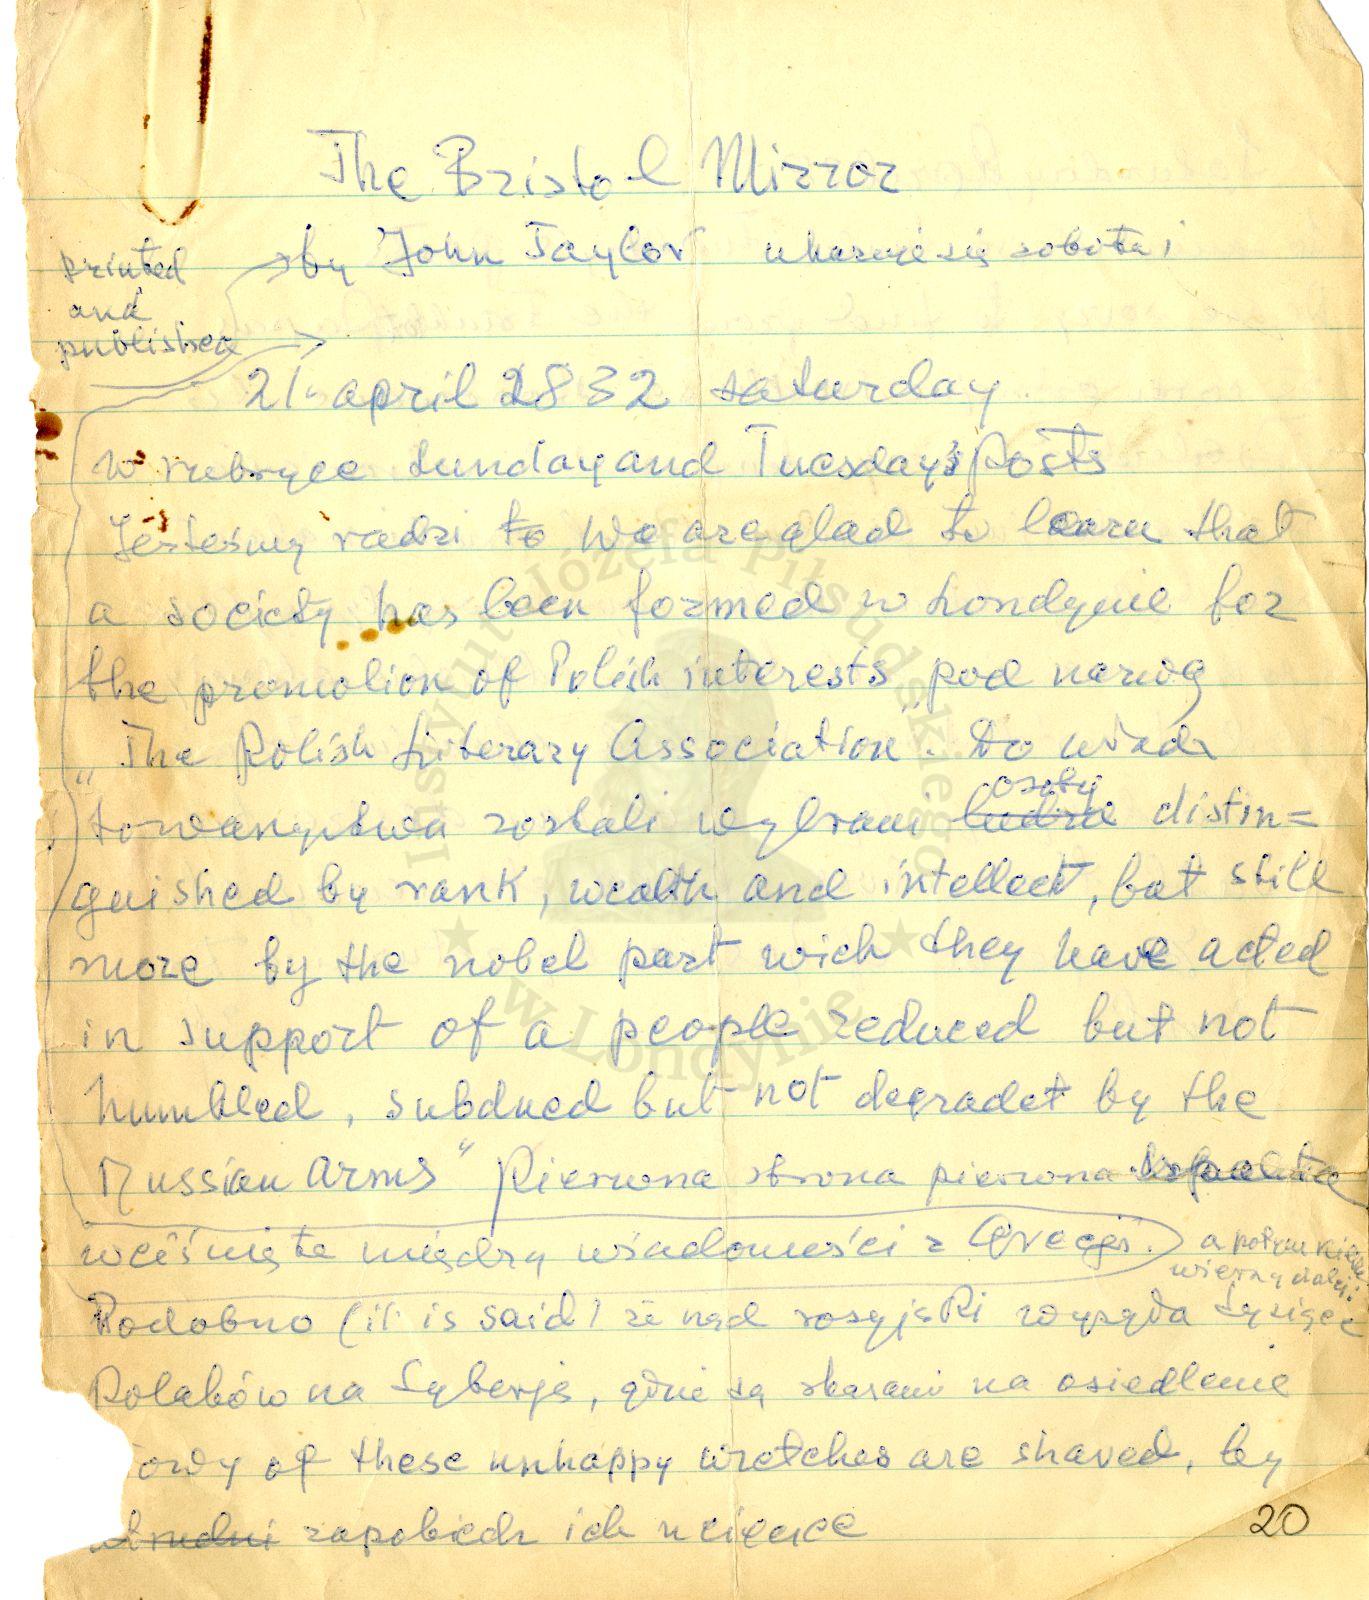 The Bristol Mirror
printed and published
by John Taylor ukazuje się sobota i
21 april 1832 saturday
w rubryce Sunday and Tuesday's Posts
Jesteśmy radzi to We are glad to learn that
a society has been formed w Londynie for
the promotion of Polish interests pod nazwą
"The Polish Literary Association. Do władz
towarzystwa zostali wybrani ludzie osoby distin=
guished by rank, wealth and intellect, but still
more by the nobel part wich they have acted
in support of a people reduced but not
humbled, subdued but not degradet by the
Russian Arms" Pierwsza strona pierwsza szpalta
wciśnięte między wiadomości z Grecji. a potem
Podobno (it is said) że rząd rosyjski wysyła tysiące
Polaków na Syberję, gdzie są skazani na osiedlenie
owy of these unhappy wretches are shaved, by
zapobiedz ich ucieczce
20
Instytut Józefa Piłsudskiego
w Londynie